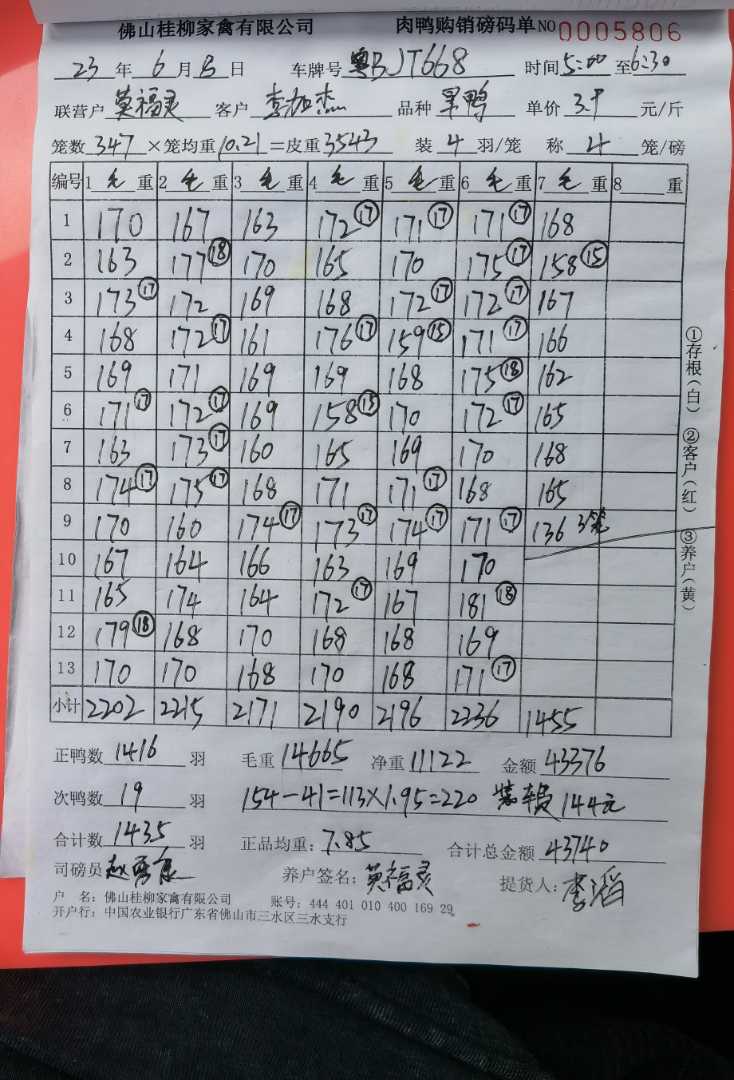 佛山桂柳家禽有限公司 肉鸭购销磅码单 NO 0005806
23 年 6 月 5 日 车牌号 粤BJT668 时间 5:00 至 6:30
联营户 莫福灵 客户 李加杰 品种 旱鸭 单价 3.9 元/斤
笼数 347 ×笼均重 10.21 =皮重 3543 装 4 羽/笼 称 4 笼/磅
编号 1 毛 重 2 毛 重 3 毛 重 4 毛 重 5 毛 重 6 毛 重 7 毛 重 8 重
1 170 167 163 172⑰ 171⑰ 171⑰ 168
2 163 177⑱ 170 165 170 175⑰ 158⑮
3 173⑰ 172 169 168 172⑰ 172⑰ 167
4 168 172⑰ 161 176⑰ 159⑮ 171⑰ 166
5 169 171 169 169 168 175⑱ 162
6 171⑰ 172⑰ 169 158⑮ 170 172⑰ 165
7 163 173⑰ 160 165 169 170 168
8 174⑰ 175⑰ 168 171 171⑰ 168 165
9 170 160 174⑰ 173⑰ 174⑰ 171⑰ 136 3笼
10 167 164 166 163 169 170
11 165 174 164 172⑰ 167 181⑱
12 179⑱ 168 170 168 168 169
13 170 170 168 170 168 171⑰
小计 2202 2215 2171 2190 2196 2236 1455
①存根(白) ②客户(红) ③养户(黄)
正鸭数 1416 羽 毛重 14665 净重 11122 金额 43376
次鸭数 19 羽 154-41=113×1.95=220 装车费 144元
合计数 1435 羽 正品均重: 7.85 合计总金额 43740
司磅员 养户签名: 莫福灵 提货人: 李滔
户 名: 佛山桂柳家禽有限公司 账号: 444 401 010 400 169 29
开户行: 中国农业银行广东省佛山市三水区三水支行